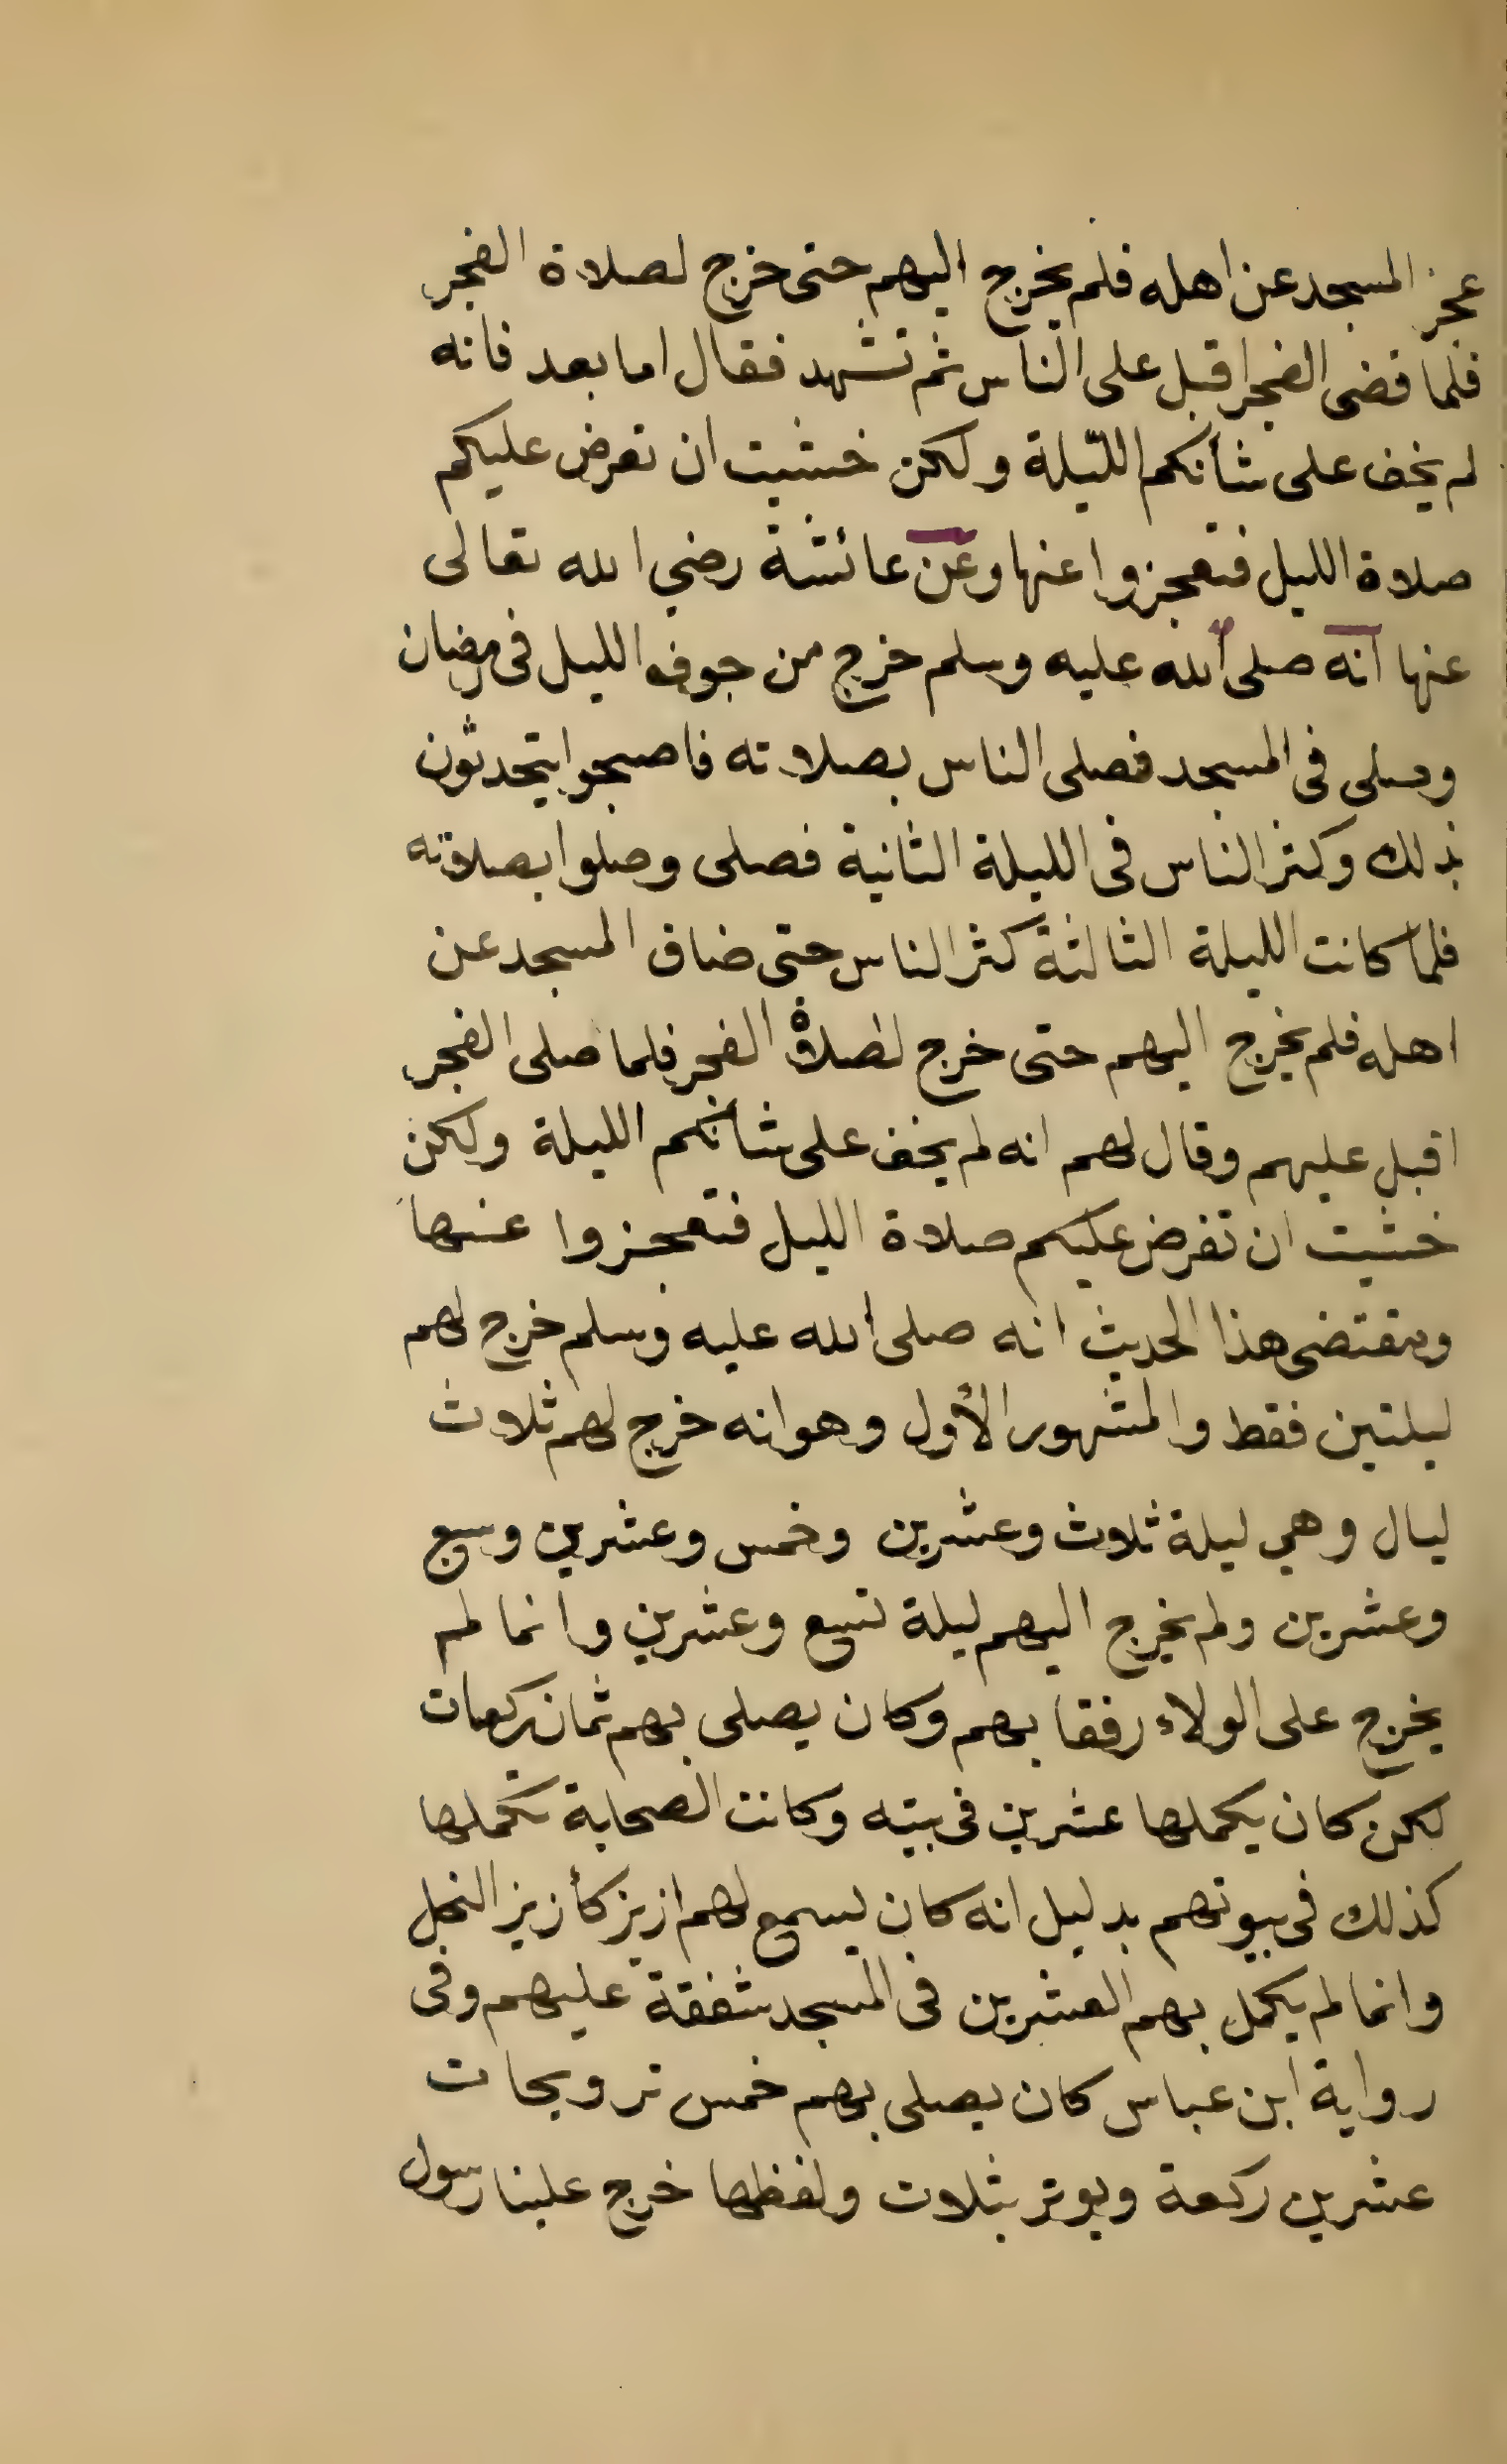 عجز المسجد عن اهله فلم يخرج اليهم حتى خرج لصلاة الفجر
فلما قضى الفجر اقبل على الناس ثم تشهد فقال اما بعد فانه
لم يخف على شأنكم الليلة ولكن خشيت ان تفرض عليكم
صلاة الليل فتعجزوا عنها وعن عائشة رضي الله تعالى
عنها انه صلى الله عليه وسلم خرج من جوف الليل في رمضان
وصلى في المسجد فصلى الناس بصلاته فاصبحوا يتحدثون
بذلك وكثر الناس في الليلة الثانية فصلى وصلوا بصلاته
فلما كانت الليلة الثالثة كثر الناس حتى ضاق المسجد عن
اهله فلم يخرج اليهم حتى خرج لصلاة الفجر فلما صلى الفجر
اقبل عليهم وقال لهم انه لم يخف على شأنكم الليلة ولكن
خشيت ان تفرض عليكم صلاة الليل فتعجزوا عنها
ومقتضى هذا الحديث انه صلى الله عليه وسلم خرج لهم
ليلتين فقط والمشهور الأول وهو انه خرج لهم ثلاث
ليال وهي ليلة ثلاث وعشرين وخمس وعشرين وسبع
وعشرين ولم يخرج اليهم ليلة تسع وعشرين وانما لم
يخرج على الولاء رفقا بهم وكان يصلى بهم ثمان ركعات
لكن كان يكملها عشرين في بيته وكانت الصحابة تكملها
كذلك في بيوتهم بدليل انه كان يسمع لهم ازيز كأزيز النحل
وانما لم يكمل بهم العشرين في المسجد شفقة عليهم وفي
رواية ابن عباس كان يصلى بهم خمس ترويحات
عشرين ركعة ويوتر بثلاث ولفظها خرج علينا رسول